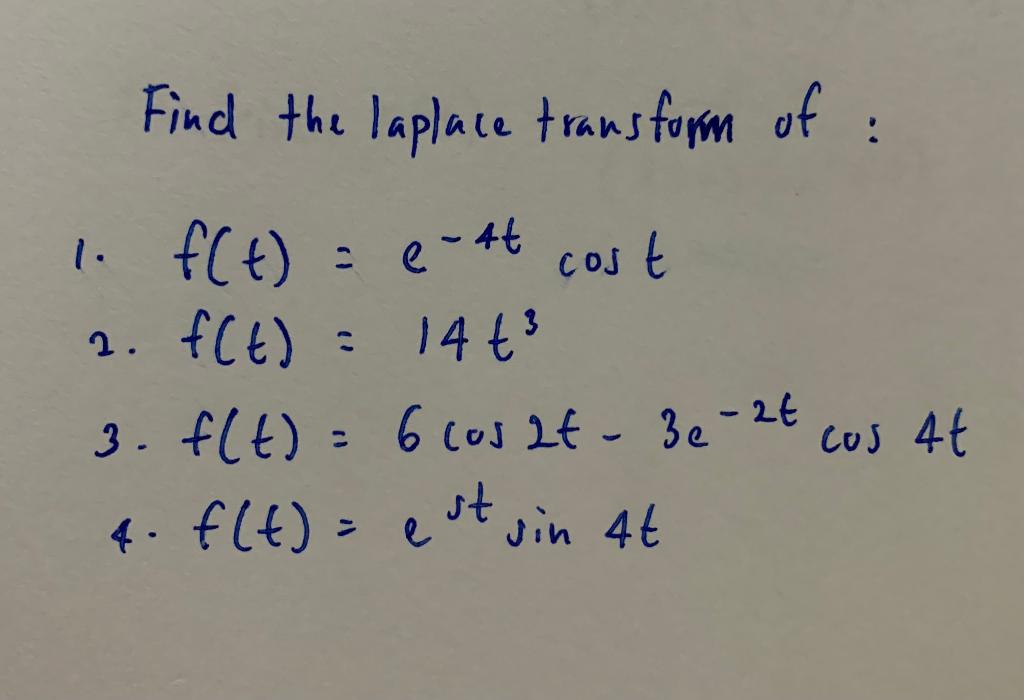 Find the laplace transform of :
1. f(t) = e^{-4t} cos t
2. f(t) = 14 t³
3. f(t) = 6 cos 2t - 3e^{-2t} cos 4t
4. f(t) = e^{st} sin 4t